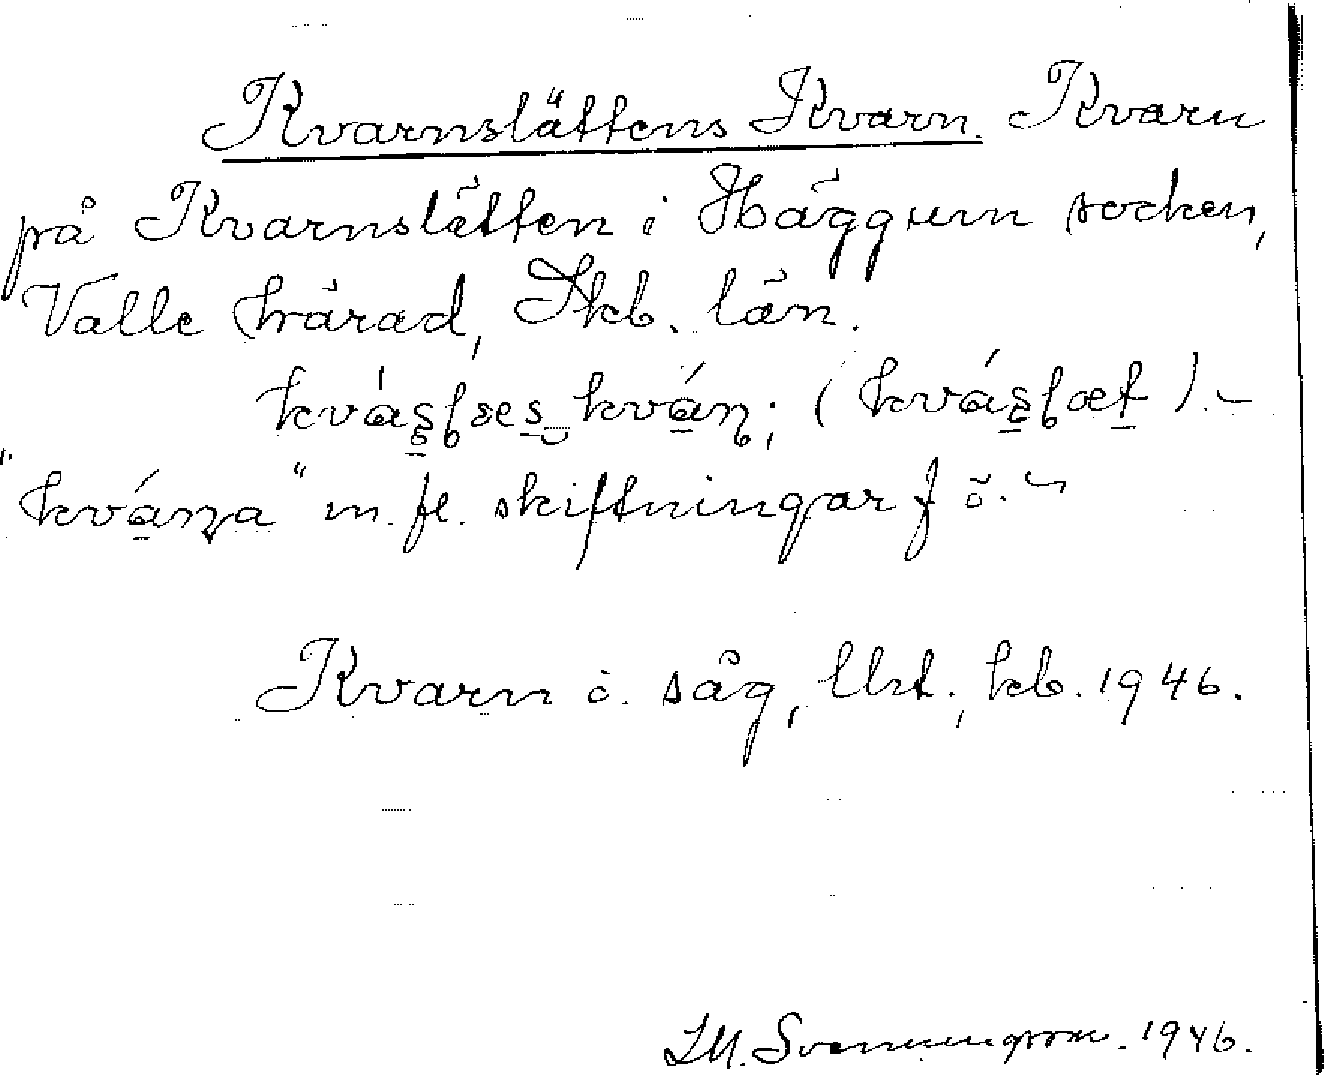 Kvarnslättens Kvarn. Kvarn
på Kvarnslätten i Häggum socken,
Valle härad, Skb. län.
"kvána" m. fl. skiftningar f ö. ~
Kvarn o. såg, Urt., kb. 1946.
S.M. Svenningsson. 1946.